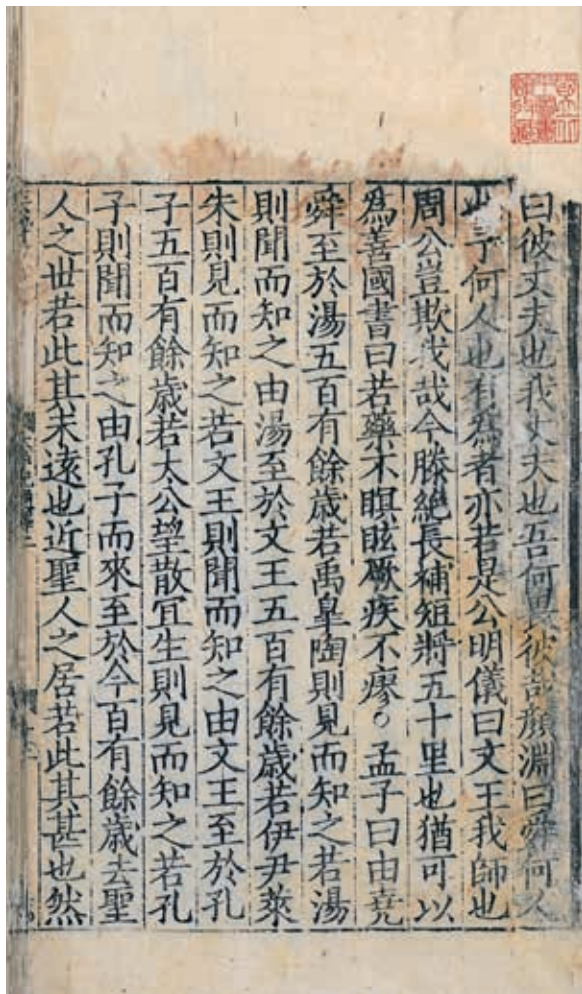 曰彼丈夫也我丈夫也吾何畏彼哉顔淵曰舜何人
也予何人也有為者亦若是公明儀曰文王我師也
周公豈欺我哉今滕絶長補短將五十里也猶可以
為善國書曰若藥不瞑眩厥疾不瘳○孟子曰由堯
舜至於湯五百有餘歳若禹皐陶則見而知之若湯
則聞而知之由湯至於文王五百有餘歳若伊尹萊
朱則見而知之若文王則聞而知之由文王至於孔
子五百有餘歳若太公望散宜生則見而知之若孔
子則聞而知之由孔子而來至於今百有餘歳去聖
人之世若此其未遠也近聖人之居若此其甚也然